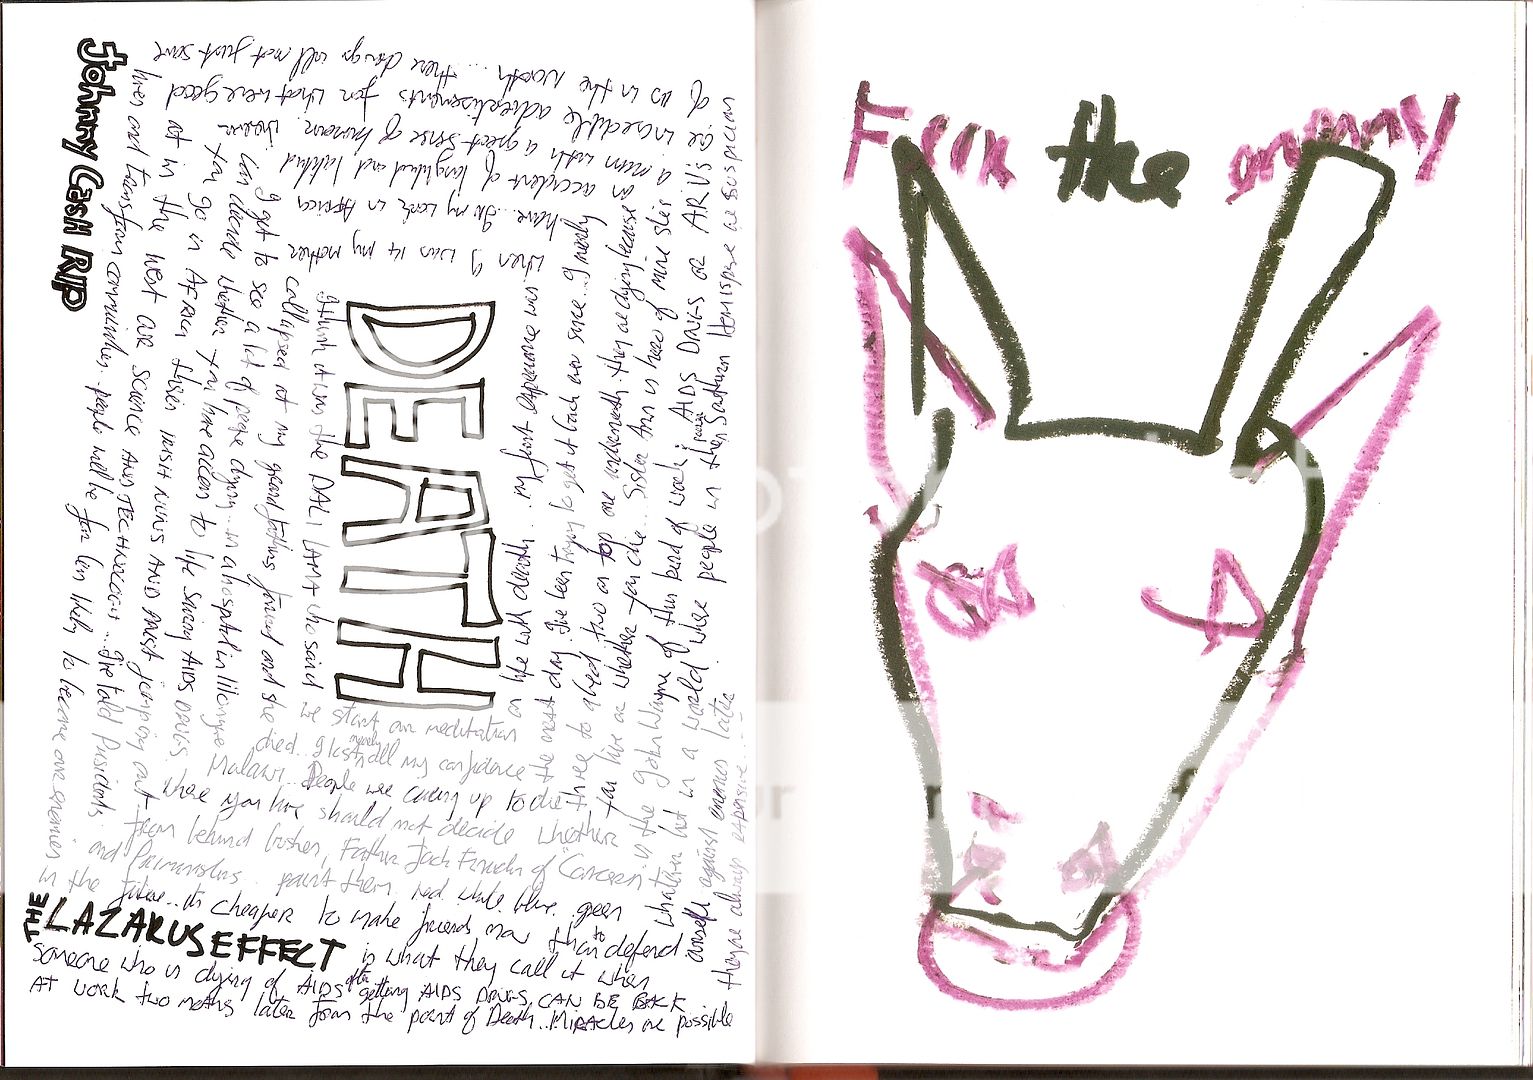 Johnny Cash RIP
DEATH
I think it was the DALI LAMA who said
we start our meditation
on life with death... my first experience was
when I was 14 my mother
collapsed at my grandfathers funeral and she
died. I lost nearly all my confidence
the next day I've been trying to get it back ever since... I nearly
have... In my work in Africa
I get to see a lot of people dying... in a hospital in Lilongwe
Malawi... People were queing up to die
three to a bed two on top one underneath. they are dying because
an accident of longitude and latitude
can decide whether you have access to life saving AIDS DRUGS
Where you live should not decide whether
you live or whether you die... Sister Ann is hero of mine shes
a nun with a great sense of humour.
You go in Africa these irish nuns and priest jumping out
from behind bushes, Father Jack of "Concern"
is the John Wayne of this kind of work; AIDS DRUGS or ARVs
are incredible advertisements for what were good
at in the west our science and technology... I've told Presidents
and Primeministers paint them red white blue green
whatever but in a world where people in the Southern Hemispere are suspicious
of us in the north... these drugs will not just save
lives and transform communities. people will be far less likely to become our enemies
in the future... its cheaper to make friends now than to defend
ourselves against enemies later
they're always expensive...
THE LAZARUS EFFECT is what they call it when
someone who is dying of AIDS after getting AIDS DRUGS CAN BE BACK
AT work two months later from the point of Death... MIRACLES are possible
Fear the